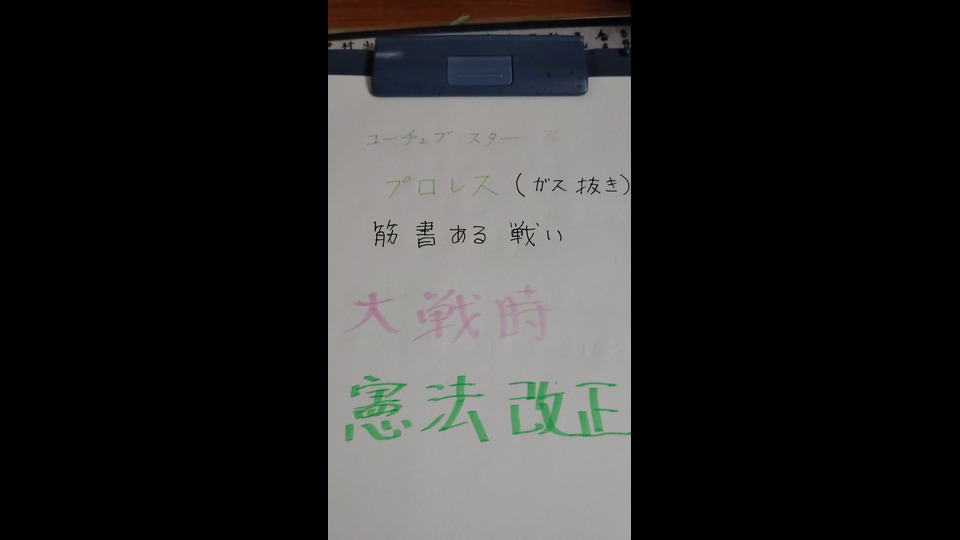 ユーチュブ スターズ
プロレス (ガス抜き)
筋書ある 戦い
大戦時
憲法改正